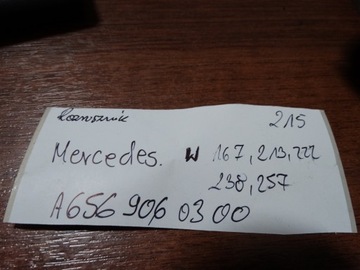 Rozrusznik 215
Mercedes. W 167, 213, 222
238, 257
A656 906 03 00